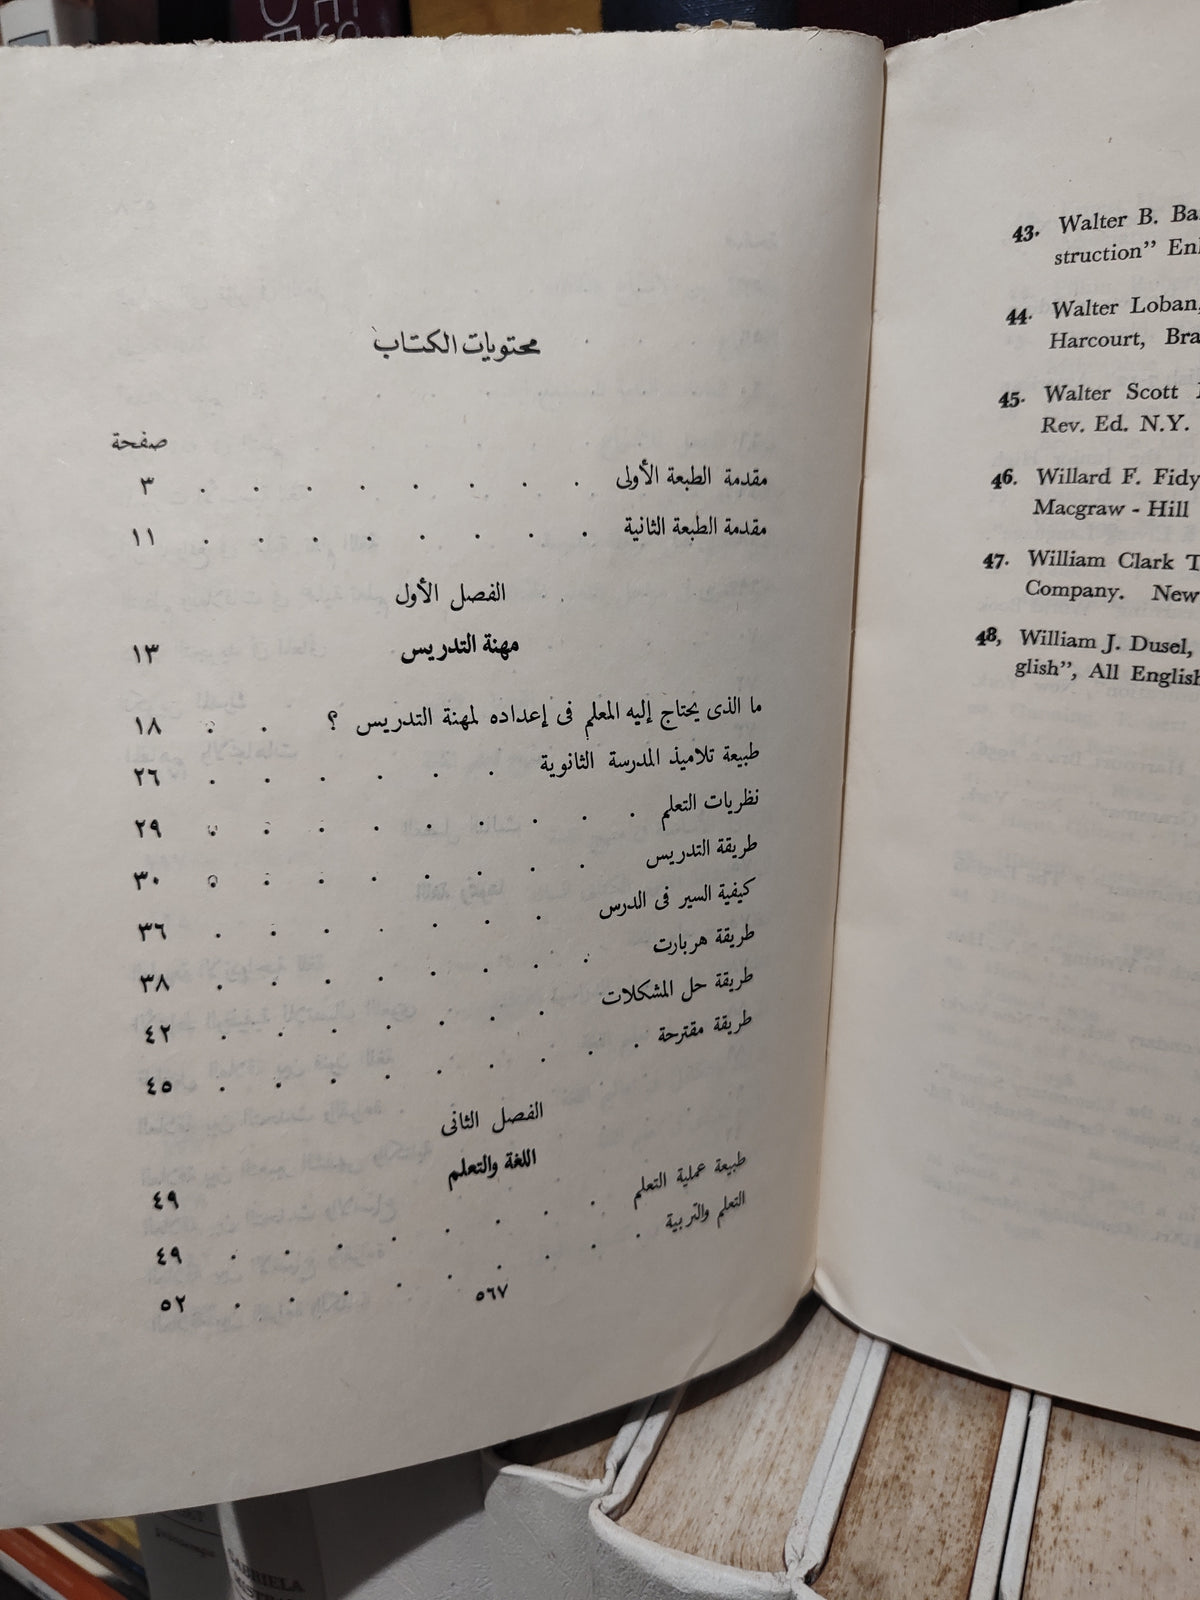 محتويات الكتاب
صفحة
مقدمة الطبعة الأولى . . . . . . . . ٣
مقدمة الطبعة الثانية . . . . . . . . ١١
الفصل الأول
مهنة التدريس ١٣
ما الذى يحتاج إليه المعلم فى إعداده لمهنة التدريس ؟ . . ١٨
طبيعة تلاميذ المدرسة الثانوية . . . . . . ٢٦
نظريات التعلم . . . . . . . . . ٢٩
طريقة التدريس . . . . . . . . ٣٠
كيفية السير فى الدرس . . . . . . . ٣٦
طريقة هربارت . . . . . . . . ٣٨
طريقة حل المشكلات . . . . . . . ٤٢
طريقة مقترحة . . . . . . . . . ٤٥
الفصل الثانى
اللغة والتعلم ٤٩
طبيعة عملية التعلم . . . . . . . ٤٩
التعلم والتربية . . . . . . . . ٥٢
٥٦٧
43. Walter B.
struction”
44. Walter Loban,
Harcourt,
45. Walter Scott
Rev. Ed. N.Y.
46. Willard F.
Macgraw - Hill
47. William Clark
Company. New
48, William J. Dusel,
glish”, All English